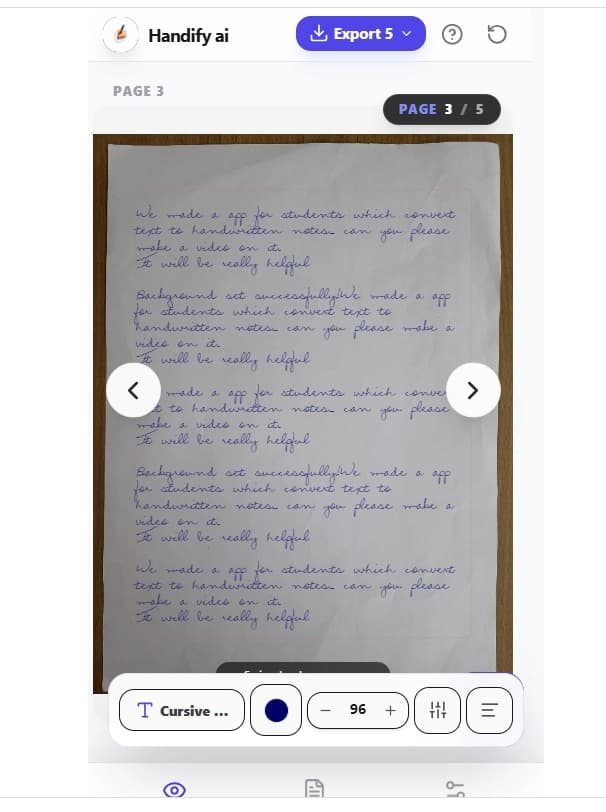 Handify ai
Export 5
PAGE 3
PAGE 3 / 5
We made a app for students which convert
text to handwritten notes. can you please
make a video on it.
It will be really helpful
Background set successfully!We made a app
for students which convert text to
handwritten notes. can you please make a
video on it.
It will be really helpful
made a app for students which
to handwritten notes. can you please
make a video on it.
It will be really helpful
Background set successfully!We made a app
for students which convert text to
handwritten notes. can you please make a
video on it.
It will be really helpful
We made a app for students which convert
text to handwritten notes. can you please
make a video on it.
It will be really helpful
T Cursive ...
− 96 +